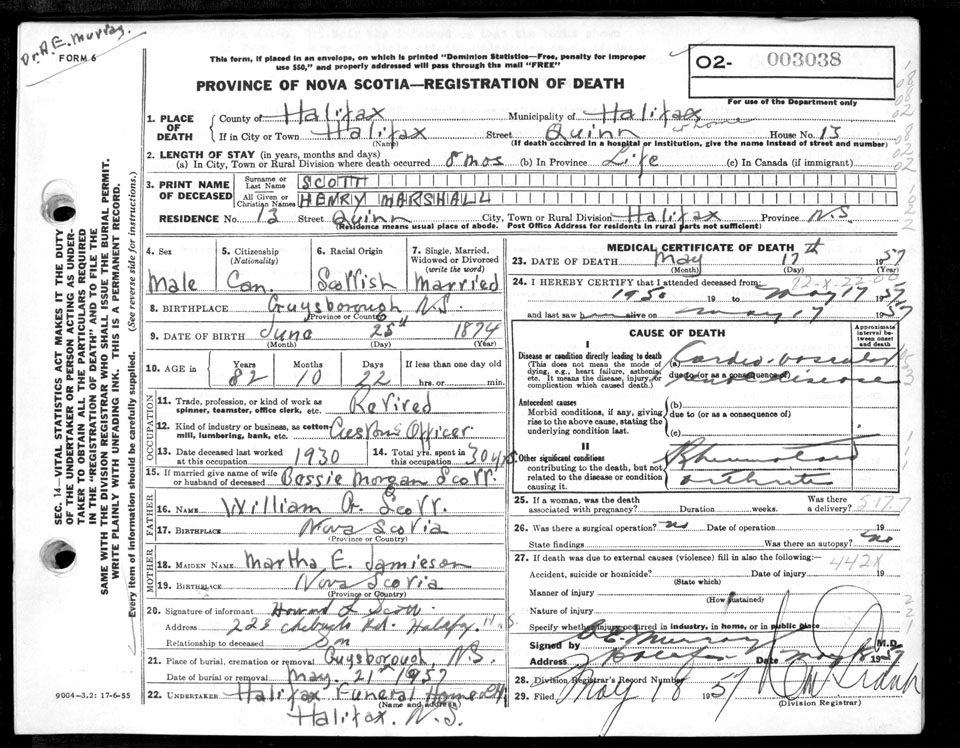 Dr. A. E. Murray.
FORM 6
This form, if placed in an envelope, on which is printed "Dominion Statistics—Free, penalty for improper
use $50," and properly addressed will pass through the mail "FREE"
O2- 003038
For use of the Department only
PROVINCE OF NOVA SCOTIA—REGISTRATION OF DEATH
SEC. 14—VITAL STATISTICS ACT MAKES IT THE DUTY
OF THE UNDERTAKER OR PERSON ACTING AS UNDER-
TAKER TO OBTAIN ALL THE PARTICULARS REQUIRED
IN THE "REGISTRATION OF DEATH" AND TO FILE THE
SAME WITH THE DIVISION REGISTRAR WHO SHALL ISSUE THE BURIAL PERMIT.
WRITE PLAINLY WITH UNFADING INK. THIS IS A PERMANENT RECORD.
Every item of information should be carefully supplied. (See reverse side for instructions.)
1. PLACE OF DEATH
County of Halifax Municipality of Halifax
If in City or Town Halifax Street Quinn at home House No. 13
(Name) (If death occurred in a hospital or institution, give the name instead of street and number)
2. LENGTH OF STAY (in years, months and days)
(a) In City, Town or Rural Division where death occurred 8 mos (b) In Province Life (c) In Canada (if immigrant)
3. PRINT NAME OF DECEASED
Surname or Last Name SCOTT
All Given or Christian Names HENRY MARSHALL
RESIDENCE No. 13 Street Quinn City, Town or Rural Division Halifax Province N.S.
(Residence means usual place of abode. Post Office Address for residents in rural parts not sufficient)
4. Sex 5. Citizenship (Nationality) 6. Racial Origin 7. Single, Married, Widowed or Divorced (write the word)
Male Can. Scottish Married
8. BIRTHPLACE Guysborough N.S.
(Province or Country)
9. DATE OF BIRTH June 25th 1874
(Month) (Day) (Year)
10. AGE in Years Months Days If less than one day old
82 10 22 hrs. or min.
OCCUPATION
11. Trade, profession, or kind of work as
spinner, teamster, office clerk, etc. Retired
12. Kind of industry or business, as cotton-
mill, lumbering, bank, etc. Customs Officer
13. Date deceased last worked
at this occupation 1930
14. Total yrs. spent in
this occupation 30 yrs.
15. If married give name of wife
or husband of deceased Bessie Morgan Scott.
FATHER
16. NAME William Scott.
17. BIRTHPLACE Nova Scotia
(Province or Country)
MOTHER
18. MAIDEN NAME Martha E. Jamieson
19. BIRTHPLACE Nova Scotia
(Province or Country)
20. Signature of informant Howard L Scott.
Address 223 Chebucto Rd. Halifax, N.S.
Relationship to deceased Son
21. Place of burial, cremation or removal Guysborough, N.S.
Date of burial or removal May. 21st 1957
22. UNDERTAKER Halifax Funeral Home
(Name and address)
Halifax. N.S.
9004-3.2: 17-6-55
MEDICAL CERTIFICATE OF DEATH
23. DATE OF DEATH May 17th 1957
(Month) (Day) (Year)
24. I HEREBY CERTIFY that I attended deceased from
1950 19 to May 17 1957
and last saw him alive on May 17 1957
CAUSE OF DEATH
Approximate interval between onset and death
I
Disease or condition directly leading to death
(This does not mean the mode of
dying, e.g., heart failure, asthenia,
etc. It means the disease, injury, or
complication which caused death.)
(a) Cardio-vascular
due to (or as a consequence of)
disease
Antecedent causes
Morbid conditions, if any, giving
rise to the above cause, stating the
underlying condition last.
(b)
due to (or as a consequence of)
(c)
II
Other significant conditions
contributing to the death, but not
related to the disease or condition
causing it.
Rheumatoid
arthritis
25. If a woman, was the death
associated with pregnancy? Duration weeks. Was there a delivery?
26. Was there a surgical operation? no Date of operation 19
State findings Was there an autopsy? no
27. If death was due to external causes (violence) fill in also the following: 442X
Accident, suicide or homicide? Date of injury 19
(State which)
Manner of injury
(How sustained)
Nature of injury
Specify whether injury occurred in industry, in home, or in public place
Signed by A E. Murray M.D.
Address Halifax Date May 18 1957
28. Division Registrar's Record Number
29. Filed May 18 1957
(Division Registrar)